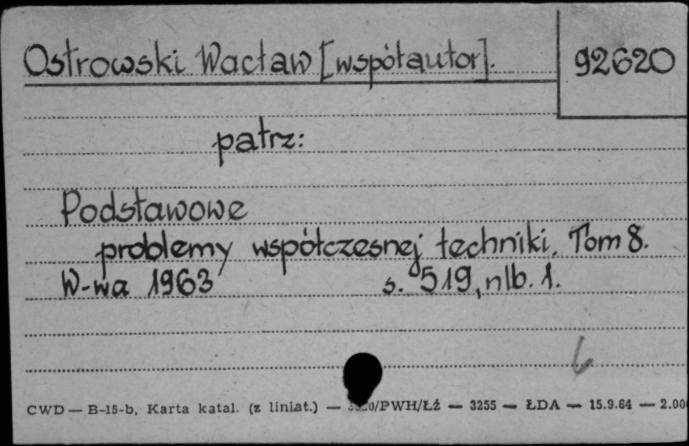 Ostrowski Wacław [współautor]. 92620
patrz:
Podstawowe
problemy współczesnej techniki. Tom 8.
W-wa 1963 s. 519, nlb. 1.
6
CWD — B-15-b, Karta katal. (z liniat.) — /PWH/Łź — 3255 — ŁDA — 15.9.64 —